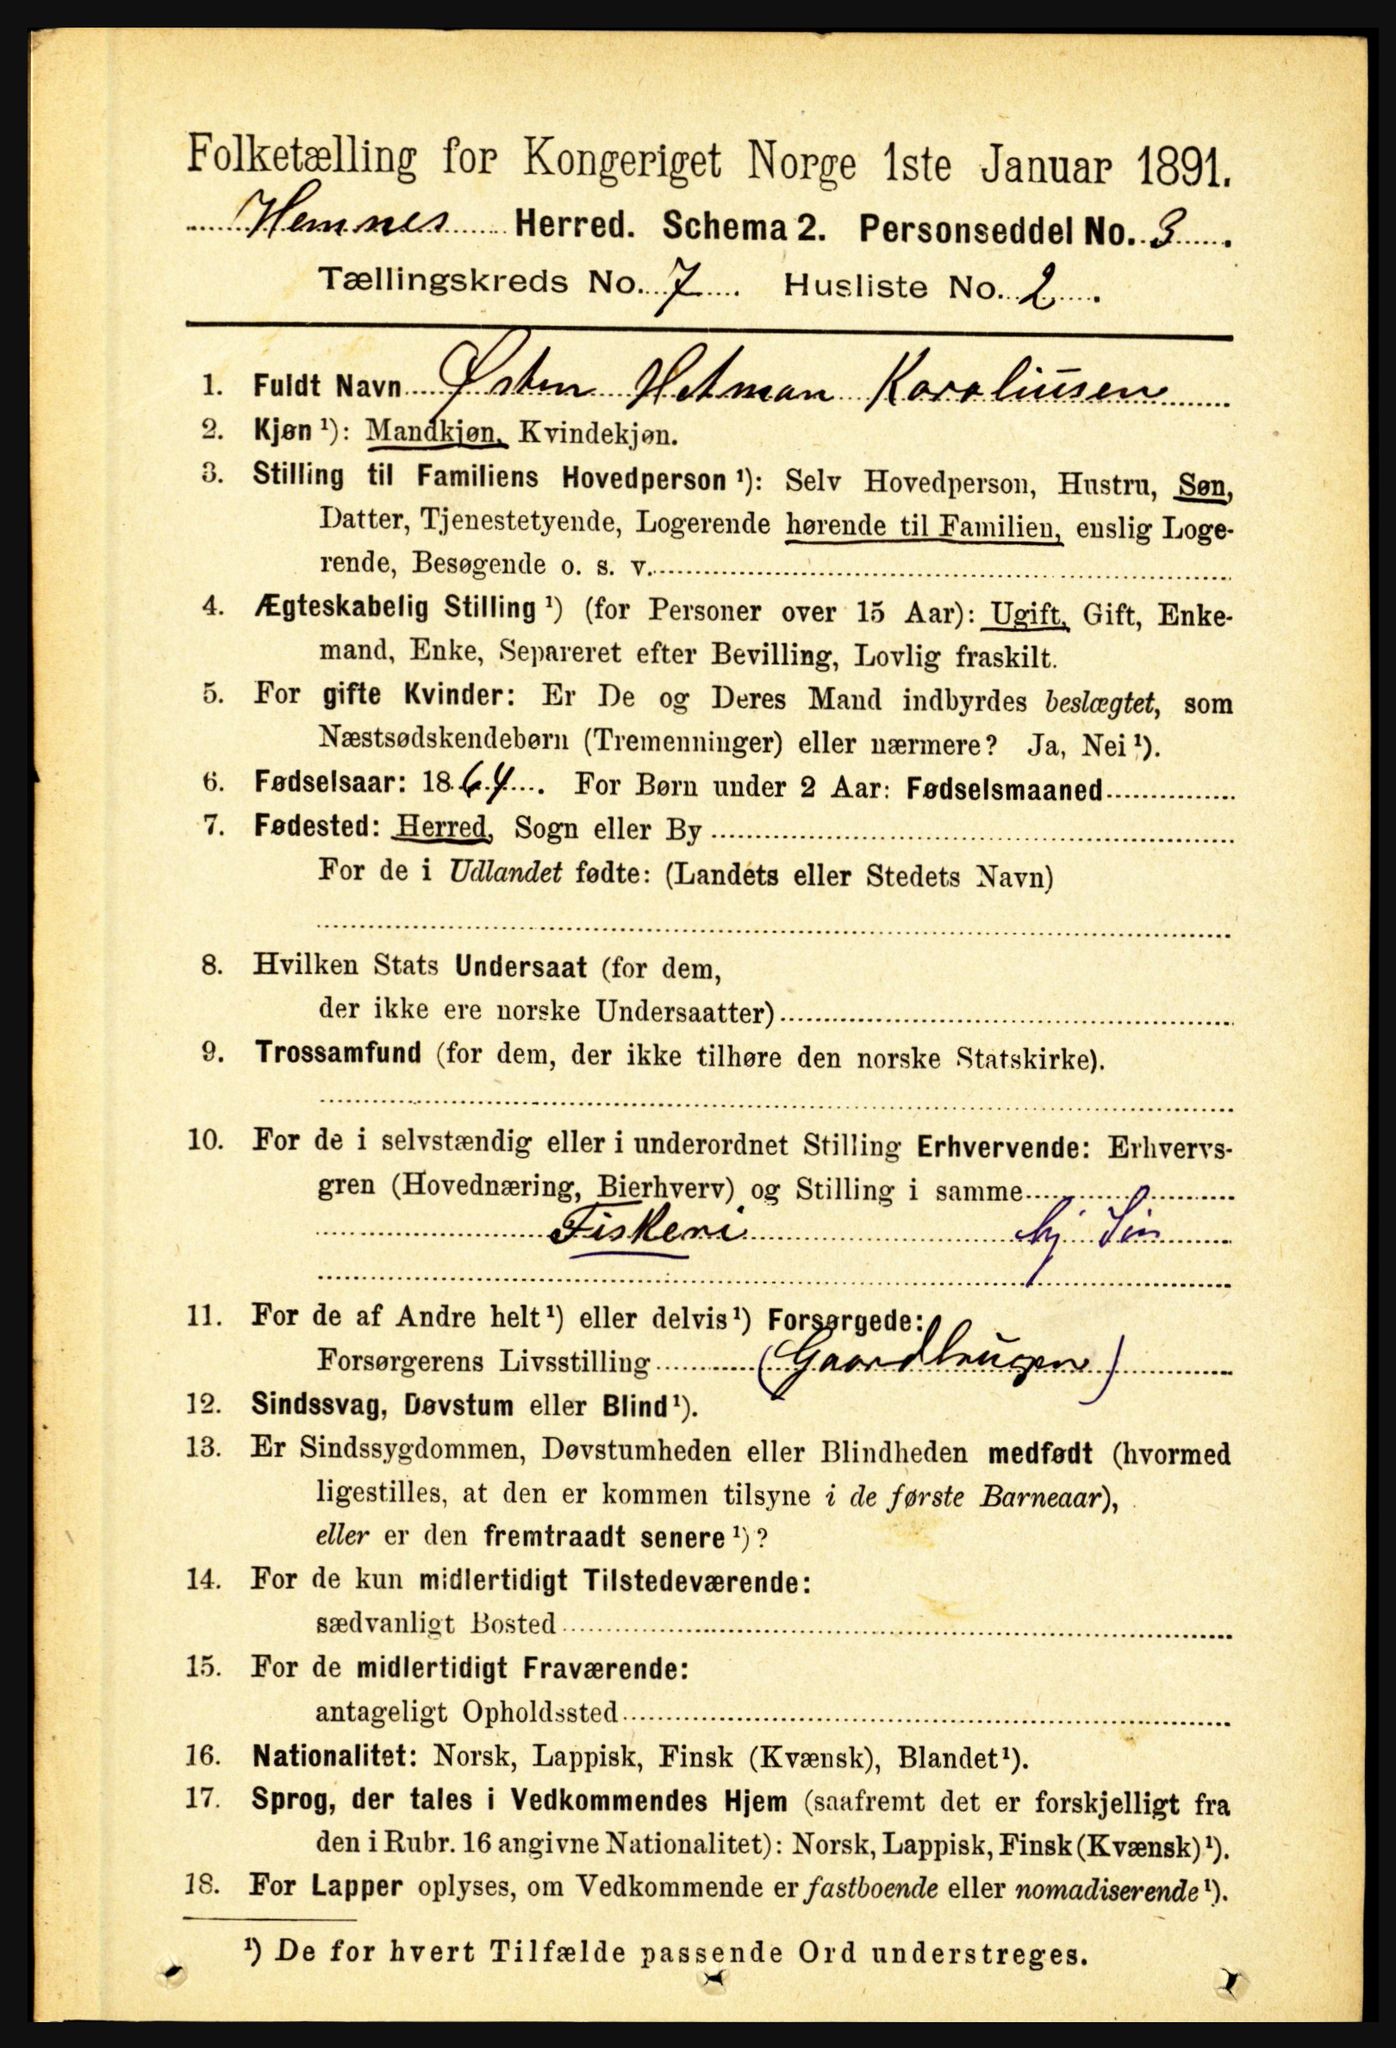 Folketælling for Kongeriget Norge 1ste Januar 1891.
Hemnes Herred. Schema 2. Personseddel No. 3.
Tællingskreds No. 7. Husliste No. 2.
1. Fuldt Navn Østen Hetman Karoliusen
2. Kjøn ¹): Mandkjøn, Kvindekjøn.
3. Stilling til Familiens Hovedperson ¹): Selv Hovedperson, Hustru, Søn,
Datter, Tjenestetyende, Logerende hørende til Familien, enslig Loge-
rende, Besøgende o. s. v.
4. Ægteskabelig Stilling ¹) (for Personer over 15 Aar): Ugift, Gift, Enke-
mand, Enke, Separeret efter Bevilling, Lovlig fraskilt.
5. For gifte Kvinder: Er De og Deres Mand indbyrdes beslægtet, som
Næstsødskendebørn (Tremenninger) eller nærmere? Ja, Nei ¹).
6. Fødselsaar: 1864. For Børn under 2 Aar: Fødselsmaaned
7. Fødested: Herred, Sogn eller By
For de i Udlandet fødte: (Landets eller Stedets Navn)
8. Hvilken Stats Undersaat (for dem,
der ikke ere norske Undersaatter)
9. Trossamfund (for dem, der ikke tilhøre den norske Statskirke).
10. For de i selvstændig eller i underordnet Stilling Erhvervende: Erhvervs-
gren (Hovednæring, Bierhverv) og Stilling i samme
Fiskeri hj Søn
11. For de af Andre helt ¹) eller delvis ¹) Forsørgede:
Forsørgerens Livsstilling (Gaardbruger)
12. Sindssvag, Døvstum eller Blind ¹).
13. Er Sindssygdommen, Døvstumheden eller Blindheden medfødt (hvormed
ligestilles, at den er kommen tilsyne i de første Barneaar),
eller er den fremtraadt senere ¹)?
14. For de kun midlertidigt Tilstedeværende:
sædvanligt Bosted
15. For de midlertidigt Fraværende:
antageligt Opholdssted
16. Nationalitet: Norsk, Lappisk, Finsk (Kvænsk), Blandet ¹).
17. Sprog, der tales i Vedkommendes Hjem (saafremt det er forskjelligt fra
den i Rubr. 16 angivne Nationalitet): Norsk, Lappisk, Finsk (Kvænsk) ¹).
18. For Lapper oplyses, om Vedkommende er fastboende eller nomadiserende ¹).
¹) De for hvert Tilfælde passende Ord understreges.